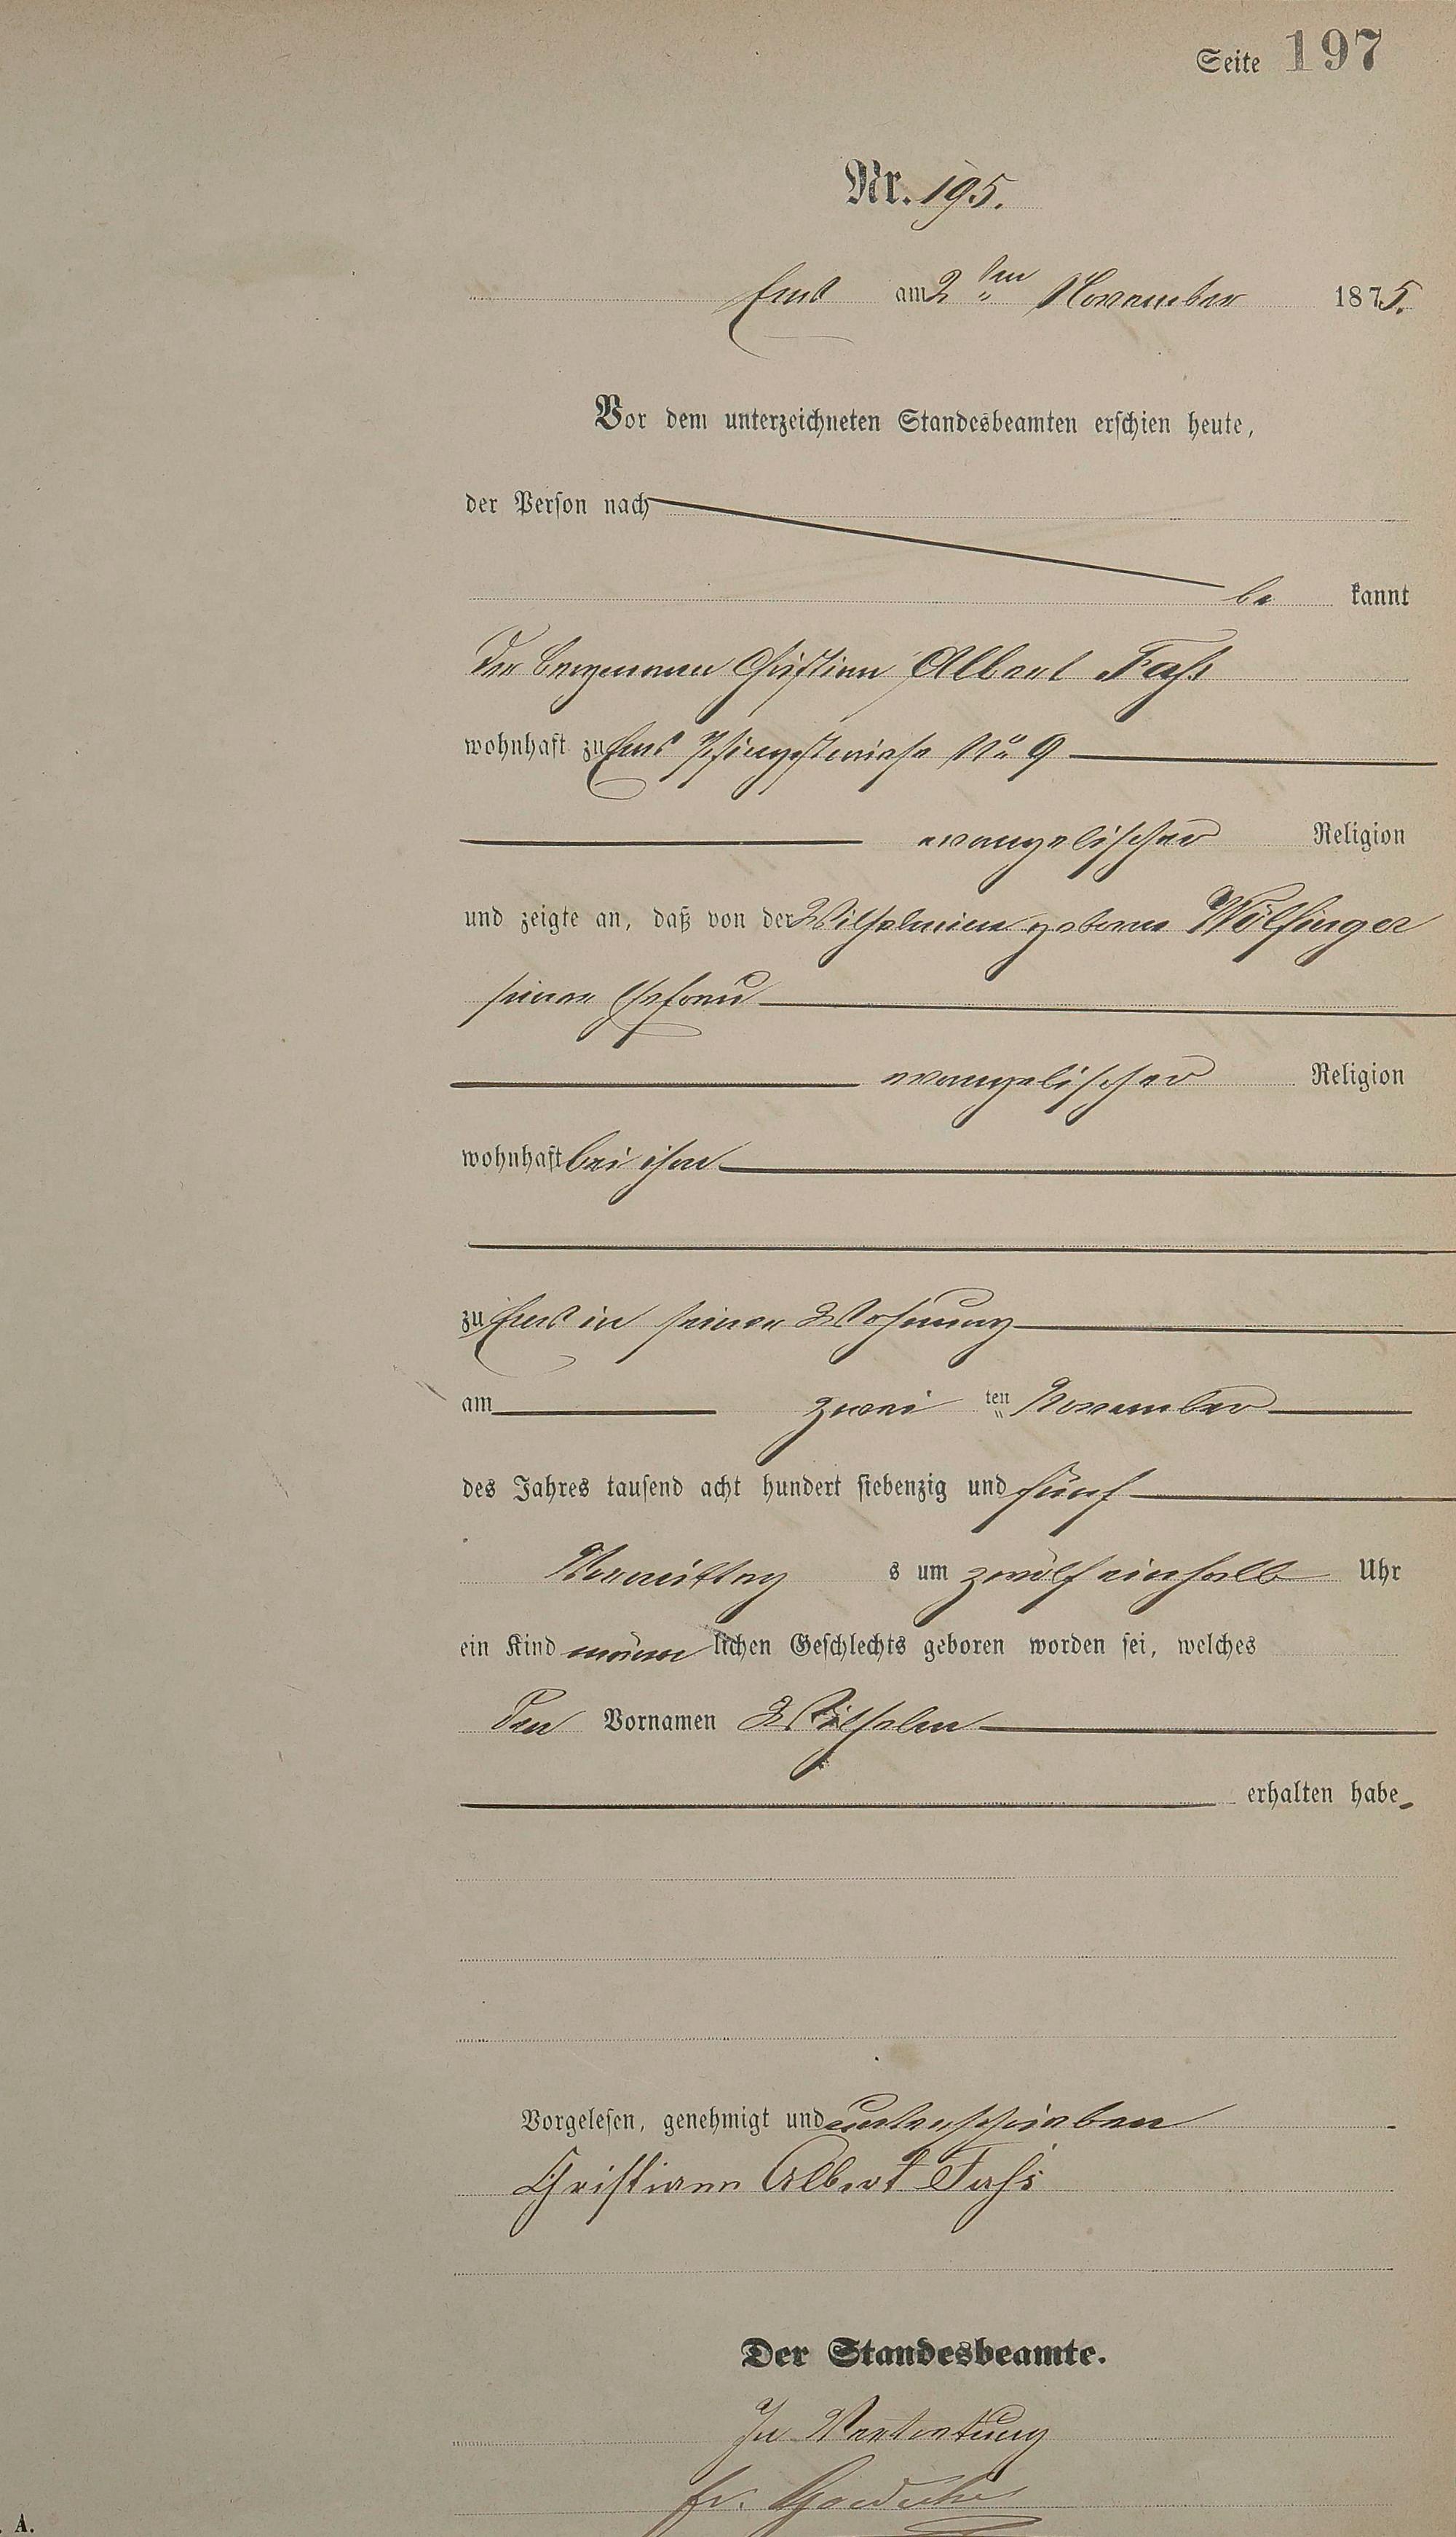 Seite 197
Nr. 195.
Ems am 2ten November 1875.
Vor dem unterzeichneten Standesbeamten erschien heute,
der Person nach
be kannt
der Bergmann Christian Albert Faß
wohnhaft zu Ems Pfingstwiese No 9
evangelischer Religion
und zeigte an, daß von der Wilhelmine geborene Wölfinger
seiner Ehefrau
evangelischer Religion
wohnhaft bei ihm
zu Ems in seiner Wohnung
am zwei ten November
des Jahres tausend acht hundert siebenzig und fünf
Vormittag s um zwölf einhalb Uhr
ein Kind männ lichen Geschlechts geboren worden sei, welches
den Vornamen Wilhelm
erhalten habe.
Vorgelesen, genehmigt und unterschrieben
Christian Albert Faß
Der Standesbeamte.
In Vertretung
fr.
A.